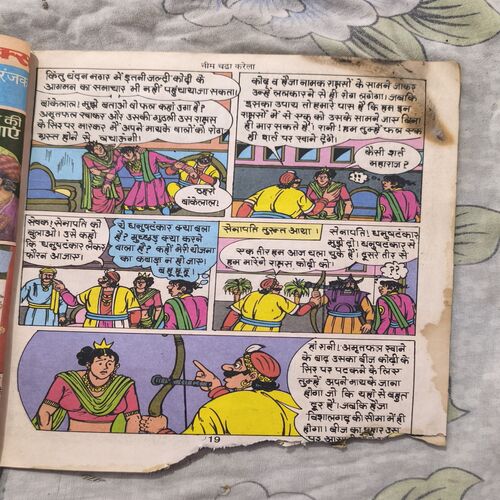 नीम चढ़ा करेला
किंतु चंदन नगर में इतनी जल्दी कोढ़ी के
आगमन का समाचार भी नहीं पहुंचाया जा सकता।
बांकेलाल! मुझे बताओ वो फल कहां उगा है?
अमृतफल खाकर और उसकी गुठली उस राक्षस
के सिर पर मारकर मैं अपने मायके वालों को रोग
ग्रस्त होने से बचाऊंगी।
बांकेलाल!
कोढ़ व हैजा नामक राक्षसों के सामने जाकर
उन्हें ललकारने से ही रोग लगेगा। जबकि
इसका उपाय तो हमारे पास है कि हम इन
राक्षसों में से एक को उसके सामने जाए बिना
ही मार सकते हैं। रानी! हम तुम्हें फल एक
ही शर्त पर खाने देंगे।
कैसी शर्त
महाराज?
सेवक! सेनापति को
बुलाओ। उसे कहो
कि धनुषटंकार लेकर
फौरन आजाए।
ये धनुषटंकार क्या बला
है? मुच्छड़ क्या करने
वाला है? कहीं मेरी योजना
का कबाड़ा न हो जाए।
सेनापति तुरन्त आया।
सेनापति! धनुषटंकार
मुझे दो। धनुषटंकार से
एक तीर हम आज चला चुके हैं। दूसरे तीर से
हम मारेंगे राक्षस कोढ़ी को।
??
हां रानी! अमृतफल खाने
के बाद उसका बीज कोढ़ी के
सिर पर पटकने के लिए
तुम्हें अपने मायके जाना
होगा जो कि यहां से बहुत
दूर है। जबकि हैजा
विशालगढ़ की सीमा में ही
होगा। बीज का प्रहार उस
19